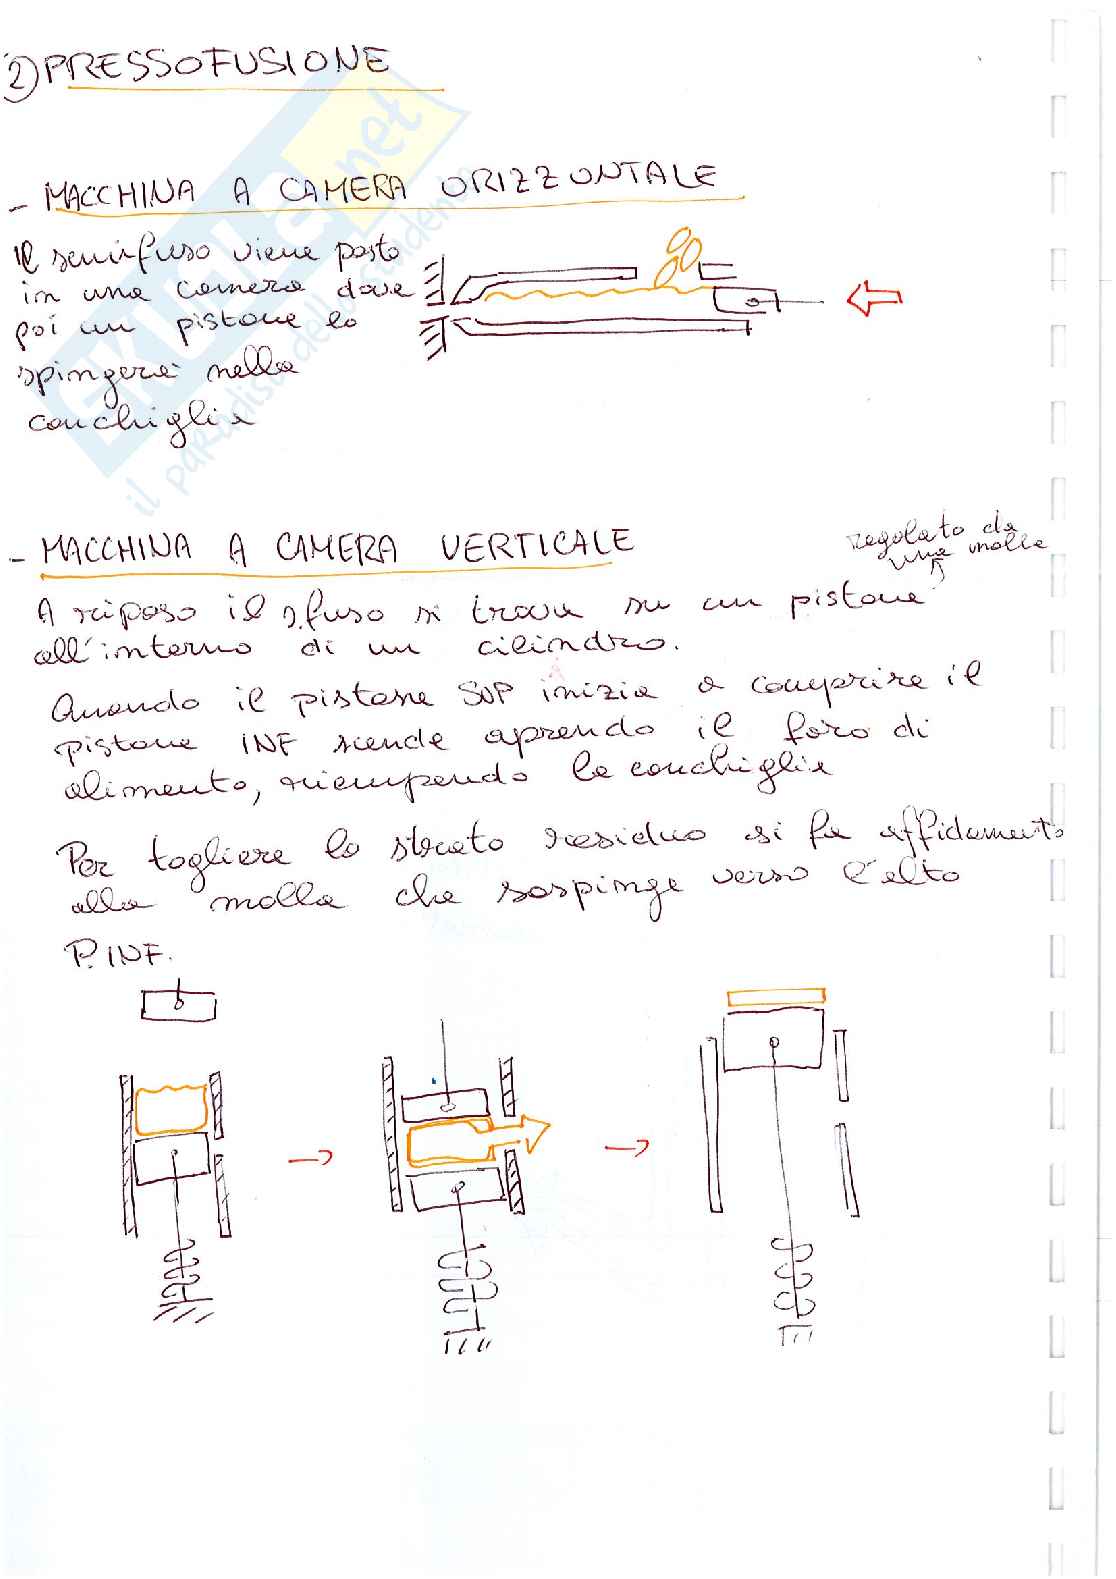 2) PRESSOFUSIONE
- MACCHINA A CAMERA ORIZZONTALE
Il semifuso viene posto
in una camera dove
poi un pistone lo
spingerà nella
conchiglia
SKUOLA.net
il paradiso dello studente
- MACCHINA A CAMERA VERTICALE
regolato da
una molla
A riposo il s.fuso si trova su un pistone
all'interno di un cilindro.
Quando il pistone SUP inizia a comprire il
pistone INF scende aprendo il foro di
alimento, riempendo la conchiglia
Per togliere lo strato residuo si fa affidamento
alla molla che sospinge verso l'alto
P. INF.